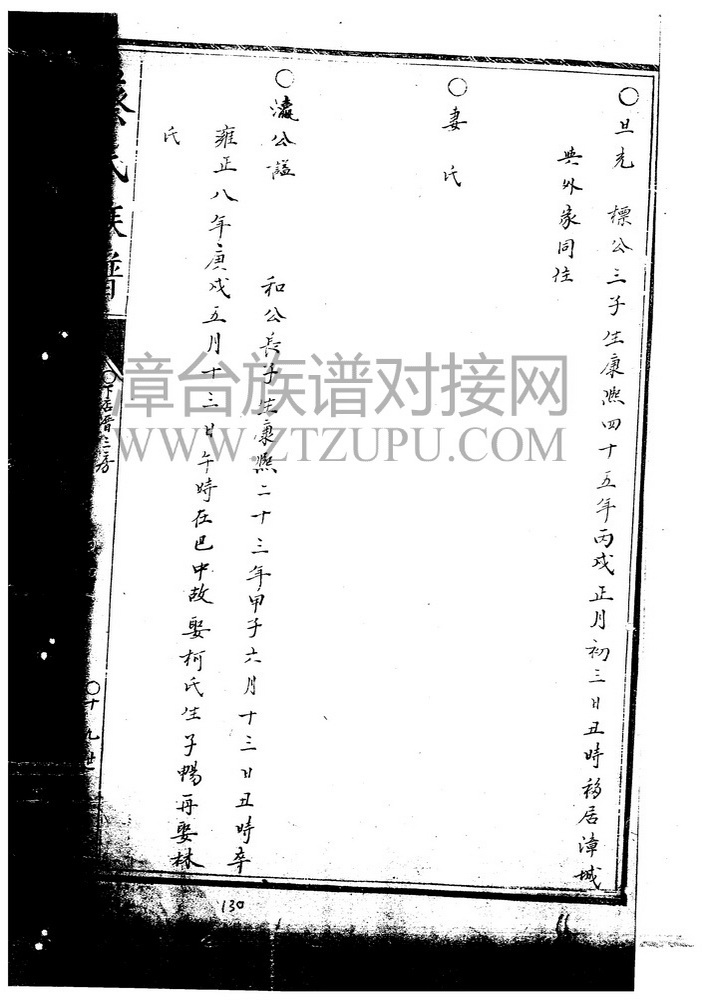 ○旦光 標公三子生康熙四十五年丙戌正月初三日丑時移居漳城
與外家同住
○妻 氏
○瀛公諡 和公長子生康熙二十三年甲子六月十三日丑時卒
雍正八年庚戌五月十三日午時在巴中故娶柯氏生子暢再娶林
氏
氏族譜
○下店晋三房
○十九世
130
漳台族谱对接网
WWW.ZTZUPU.COM